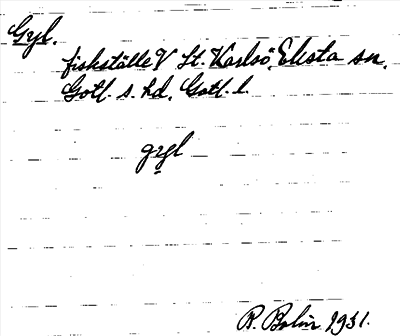 Gryl.
fiskställe V St. Karlsö, Eksta sn.
Gotl. s. hd. Gotl. l.
gryl
R. Bolin 1931.